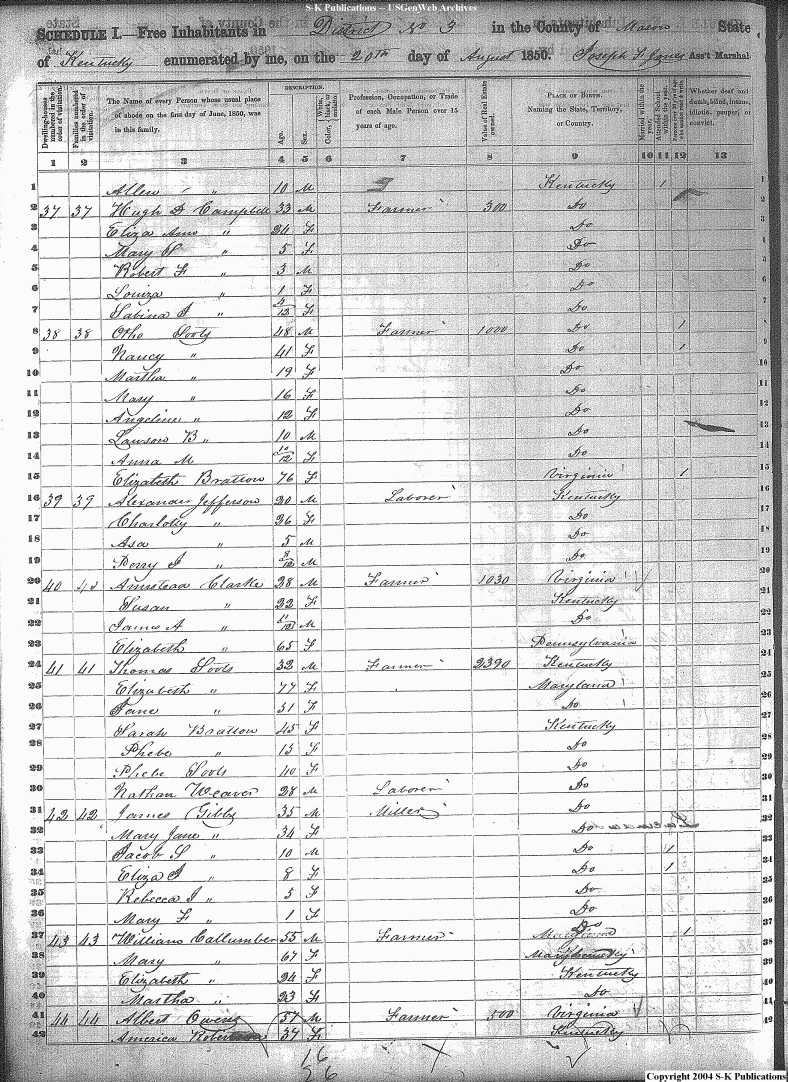 S-K Publications -- USGenWeb Archives
SCHEDULE I.—Free Inhabitants in District No 3 in the County of Mason State
of Kentucky enumerated by me, on the 20th day of August 1850. Joseph F. Jones Ass't Marshal.
Dwelling-houses numbered in the order of visitation.
Families numbered in the order of visitation.
The Name of every Person whose usual place of abode on the first day of June, 1850, was in this family.
DESCRIPTION.
Age.
Sex.
White, black, or mulatto. Color,
Profession, Occupation, or Trade of each Male Person over 15 years of age.
Value of Real Estate owned.
PLACE OF BIRTH. Naming the State, Territory, or Country.
Married within the year.
Attended School within the year.
Whether deaf and dumb, blind, insane, idiotic, pauper, or convict.
1 2 3 4 5 6 7 8 9 10 11 12 13
1 Allen " " 10 M Kentucky 1 1
2 37 37 Hugh D Campbell 33 M Farmer 300 Do 2
3 Eliza Ann " 24 F Do 3
4 Mary " 5 F Do 4
5 Robert F " 3 M Do 5
6 Louiza " 1 F Do 6
7 Sabina J " 4/12 F Do 7
8 38 38 Otho Soots 48 M Farmer 1000 Do 1 8
9 Nancy " 41 F Do 1 9
10 Martha " 19 F Do 10
11 Mary " 16 F Do 11
12 Angeline " 12 F Do 12
13 Lawson B " 10 M Do 13
14 Anna M 10/12 F Do 14
15 Elizabeth Bratton 76 F Virginia 1 15
16 39 39 Alexander Jefferson 20 M Laborer Kentucky 16
17 Charlotty " 26 F Do 17
18 Asa " 5 M Do 18
19 Perry J " 8/12 M Do 19
20 40 40 Armstead Clarke 28 M Farmer 1030 Virginia 20
21 Susan " 22 F Kentucky 21
22 James A " 11/12 M Do 22
23 Elizabeth " 65 F Pennsylvania 23
24 41 41 Thomas Soots 32 M Farmer 2390 Kentucky 24
25 Elizabeth " 77 F Maryland 25
26 Jane " 51 F Do 26
27 Sarah Bratton 45 F Kentucky 27
28 Phebe " 15 F Do 28
29 Phebe Soots 40 F Do 29
30 Nathan Weaver 28 M Laborer Do 30
31 42 42 James Gibby 35 M Miller Do
32 Mary Jane " 34 F Do 32
33 Jacob S " 10 M Do 1 33
34 Eliza J " 8 F Do 1 34
35 Rebecca J " 5 F Do 35
36 Mary F " 1 F Do 36
37 43 43 William Callumber 55 M Farmer Maryland 1 37
38 Mary " 67 F 38
39 Elizabeth " 24 F Kentucky 39
40 Martha " 23 F Do 40
41 44 44 Albert Owens 37 M Farmer 500 Virginia 41
42 America 37 F Kentucky 42
16
26
X
Copyright 2004 S-K Publications